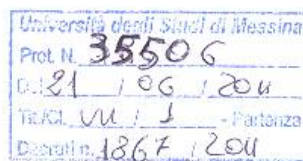 Università degli Studi di Messina
Prot. N. 35506
Del 21 / 06 / 2011
Tit./Cl. VII / 1 - Partenza
Decreti n. 1867 / 2011